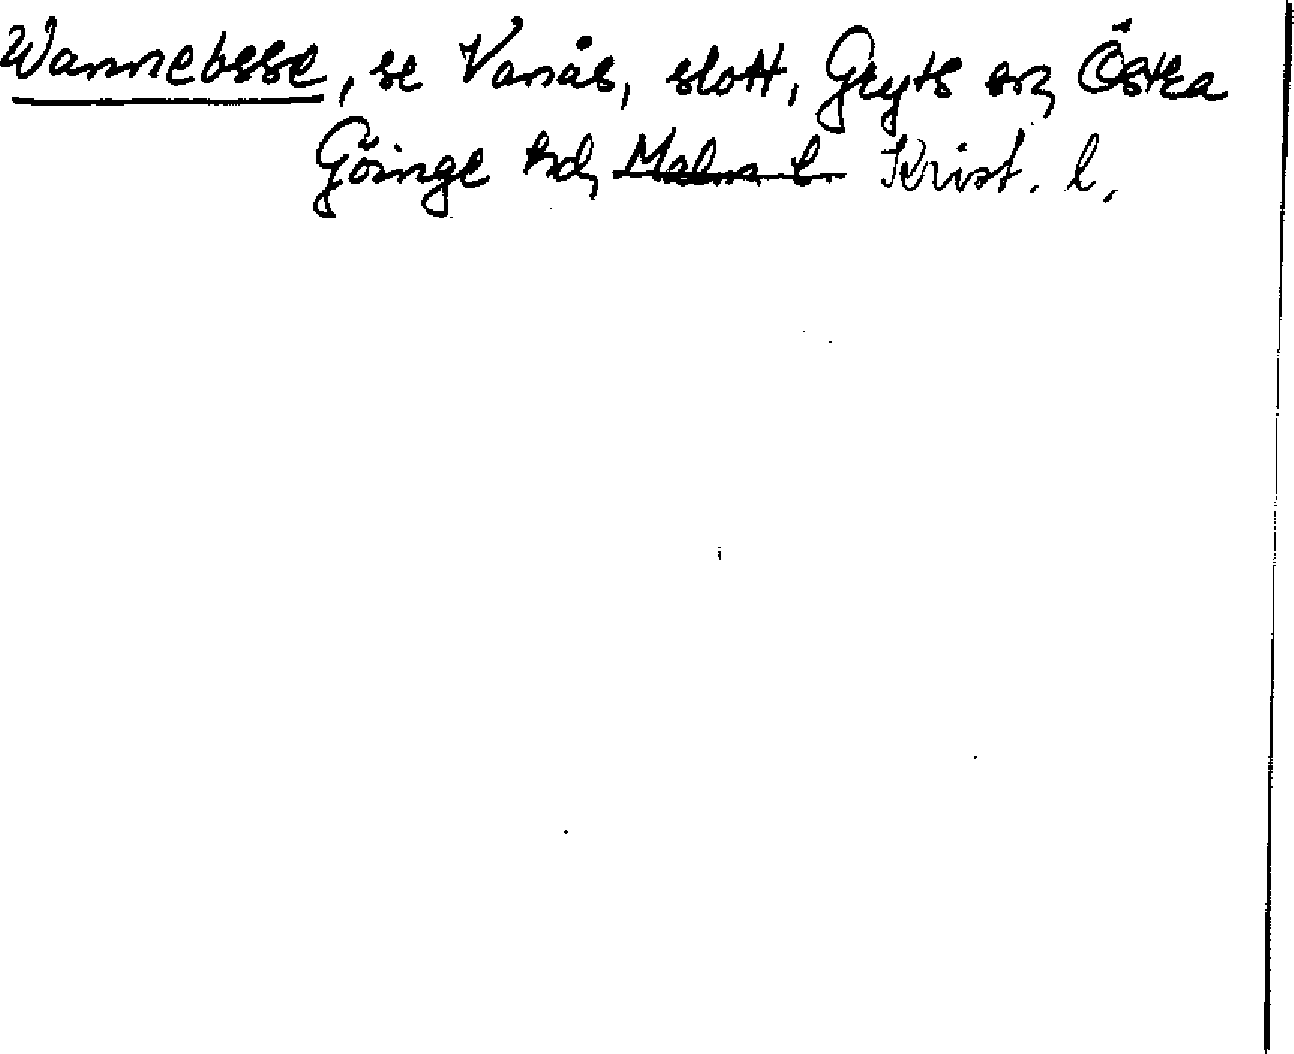 Wannebsse, se Vanås, slott, Gryts sn, Östra
Göinge hd, Malm. l. Krist. l.